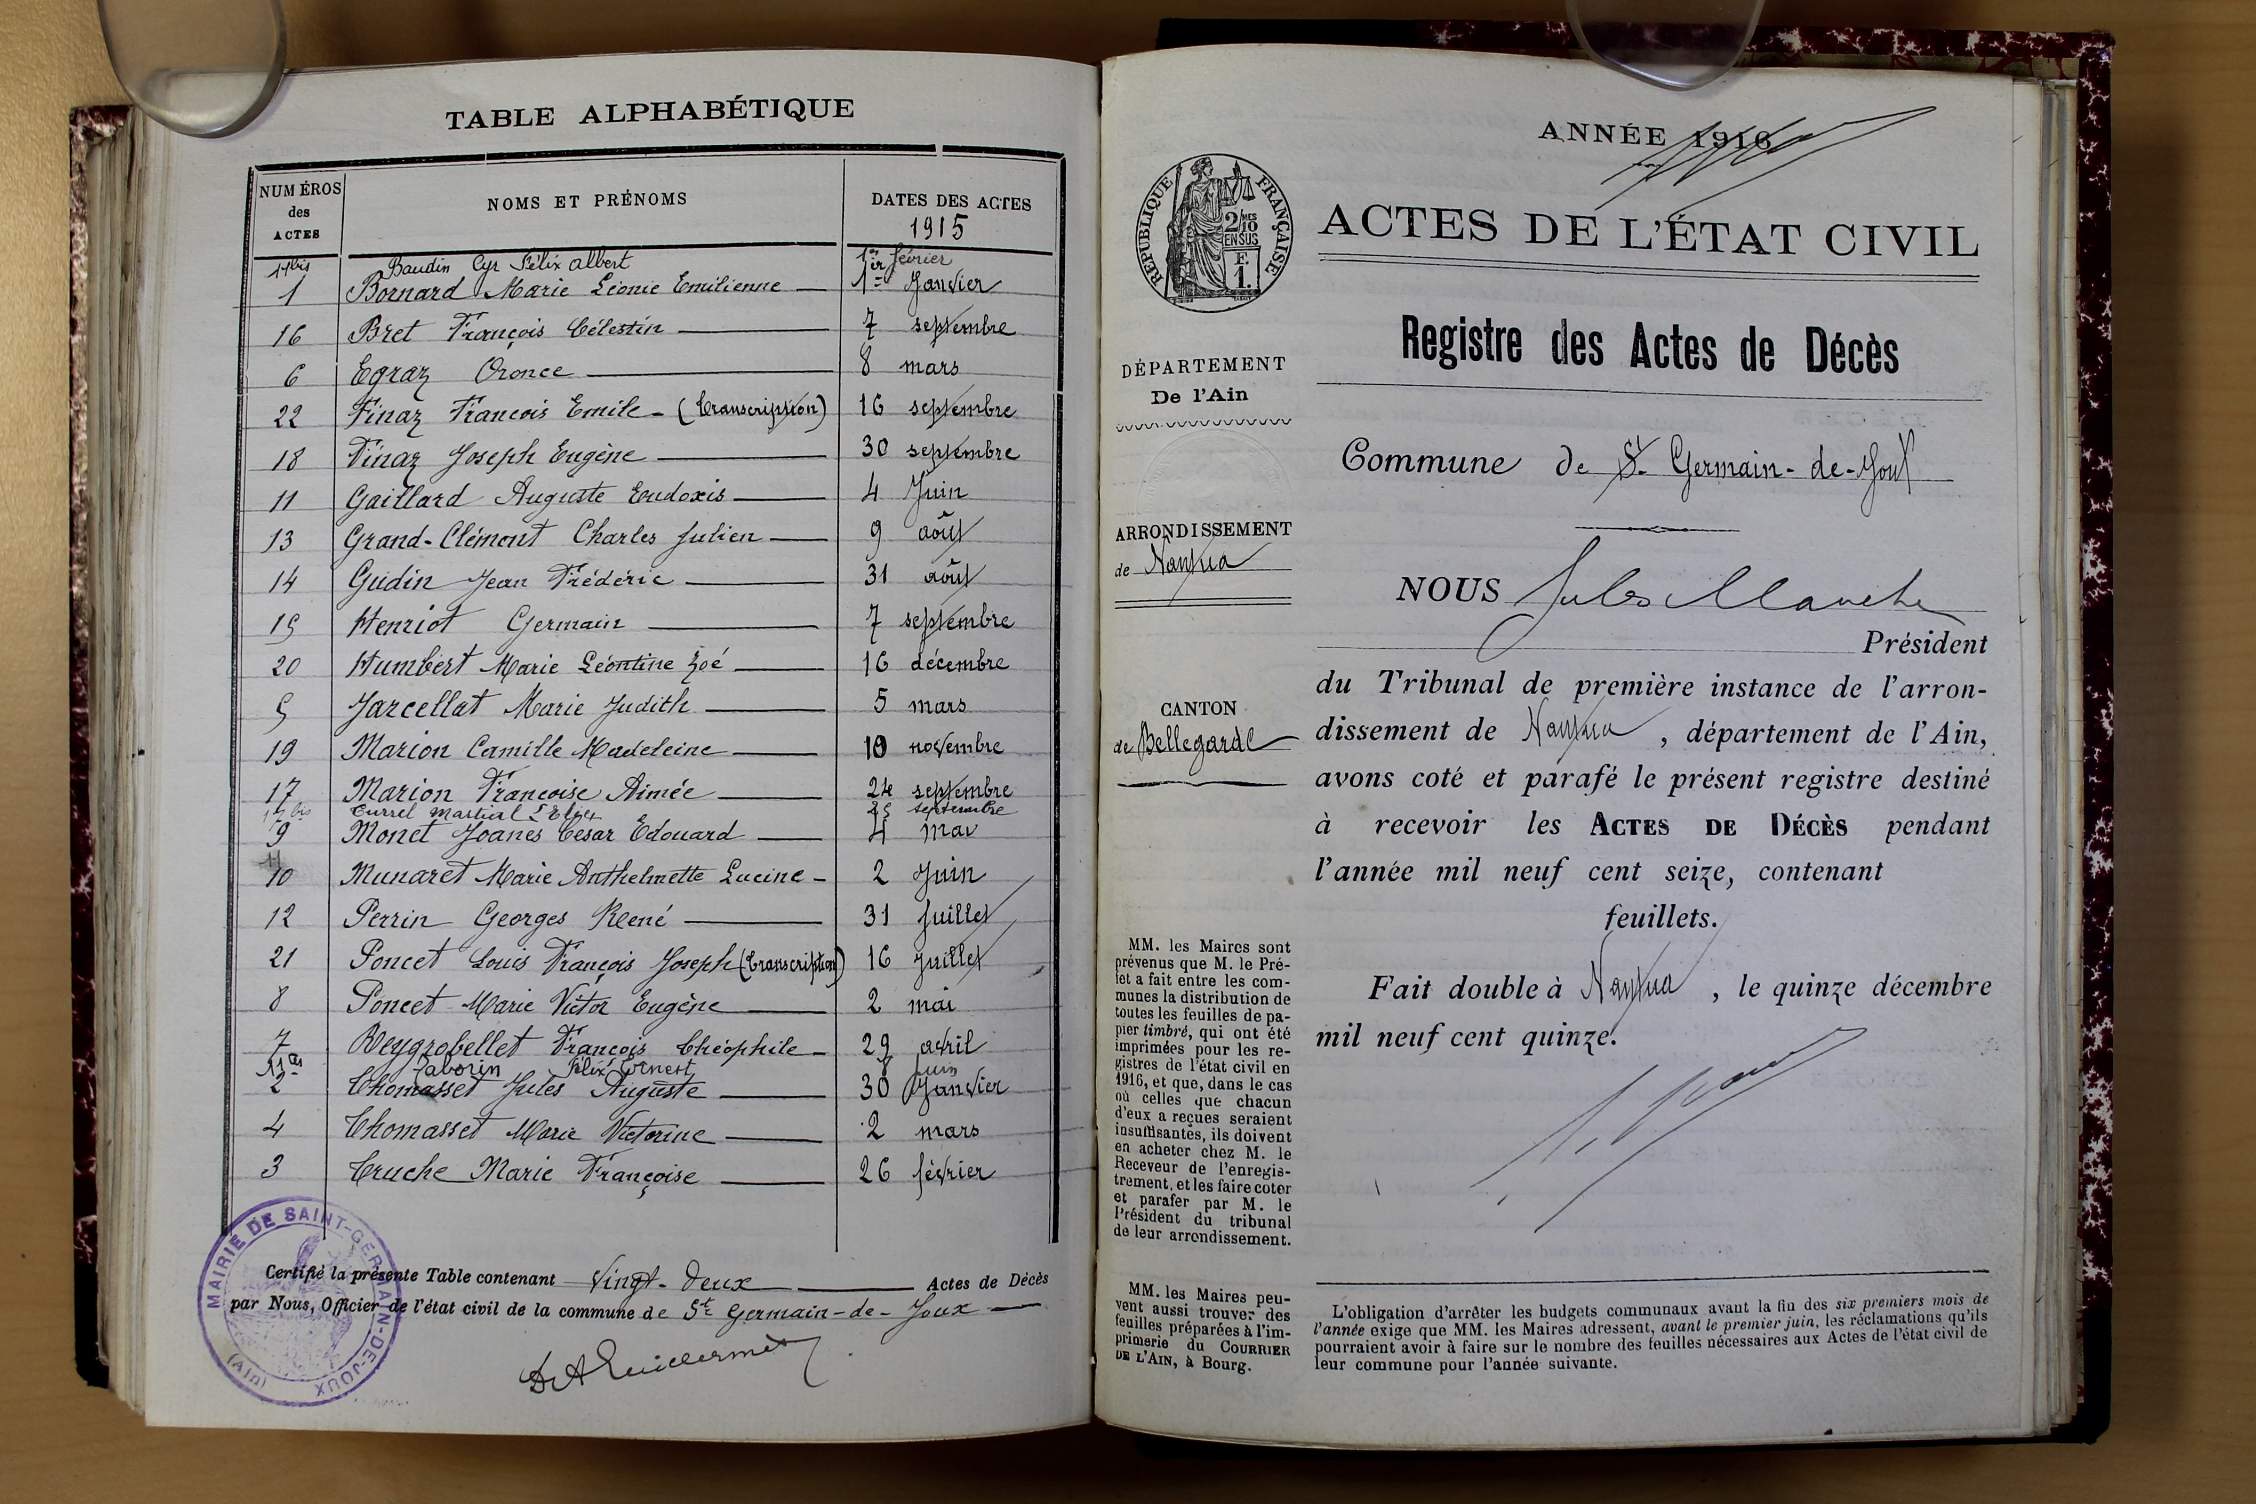 TABLE ALPHABÉTIQUE
NUMÉROS des ACTES NOMS ET PRÉNOMS DATES DES ACTES 1915
Baudin Cyr Félix Albert 1er février
1 Bornard Marie Léonie Emilienne 1er Janvier
16 Bret François Célestin 7 septembre
6 Egraz Oronce 8 mars
22 Finaz François Emile - (transcription) 16 septembre
18 Finaz Joseph Eugène 30 septembre
11 Gaillard Auguste Eudoxis 4 Juin
13 Grand-Clément Charles Julien 9 août
14 Gudin Jean Frédéric 31 août
15 Henriot Germain 7 septembre
20 Humbert Marie Léontine Zoé 16 décembre
5 Jarcellat Marie Judith 5 mars
19 Marion Camille Madeleine 10 novembre
17 Marion Françoise Aimée 24 septembre
17 bis Turrel Martial 25 septembre
9 Monet Joanes César Edouard 4 mai
10 Munaret Marie Anthelmette Lucine - 2 Juin
12 Perrin Georges René 31 Juillet
21 Poncet Louis François Joseph (transcription) 16 Juillet
8 Poncet Marie Victor Eugène 2 mai
7 Reygrobellet François Théophile 29 avril
Taborin Félix Ernest 8 Juin
2 Thomasset Jules Auguste 30 Janvier
4 Thomasset Marie Victorine 2 mars
3 Truche Marie Françoise 26 février
MAIRIE DE SAINT-GERMAIN-DE-JOUX
(AIN)
Certifié la présente Table contenant Vingt-Deux Actes de Décès
par Nous, Officier de l'état civil de la commune de St Germain-de-Joux
ANNÉE 1916
RÉPUBLIQUE FRANÇAISE
2/10 MES
EN SUS
F.
1.
ACTES DE L'ÉTAT CIVIL
Registre des Actes de Décès
DÉPARTEMENT
De l'Ain
Commune de St Germain-de-Joux
ARRONDISSEMENT
de Nantua
CANTON
de Bellegarde
NOUS Jules
Président
du Tribunal de première instance de l'arron-
dissement de Nantua, département de l'Ain,
avons coté et parafé le présent registre destiné
à recevoir les ACTES DE DÉCÈS pendant
l'année mil neuf cent seize, contenant
feuillets.
Fait double à Nantua, le quinze décembre
mil neuf cent quinze.
MM. les Maires sont
prévenus que M. le Pré-
fet a fait entre les com-
munes la distribution de
toutes les feuilles de pa-
pier timbré, qui ont été
imprimées pour les re-
gistres de l'état civil en
1916, et que, dans le cas
où celles que chacun
d'eux a reçues seraient
insuffisantes, ils doivent
en acheter chez M. le
Receveur de l'enregis-
trement, et les faire coter
et parafer par M. le
Président du tribunal
de leur arrondissement.
MM. les Maires peu-
vent aussi trouver des
feuilles préparées à l'im-
primerie du COURRIER
DE L'AIN, à Bourg.
L'obligation d'arrêter les budgets communaux avant la fin des six premiers mois de
l'année exige que MM. les Maires adressent, avant le premier juin, les réclamations qu'ils
pourraient avoir à faire sur le nombre des feuilles nécessaires aux Actes de l'état civil de
leur commune pour l'année suivante.